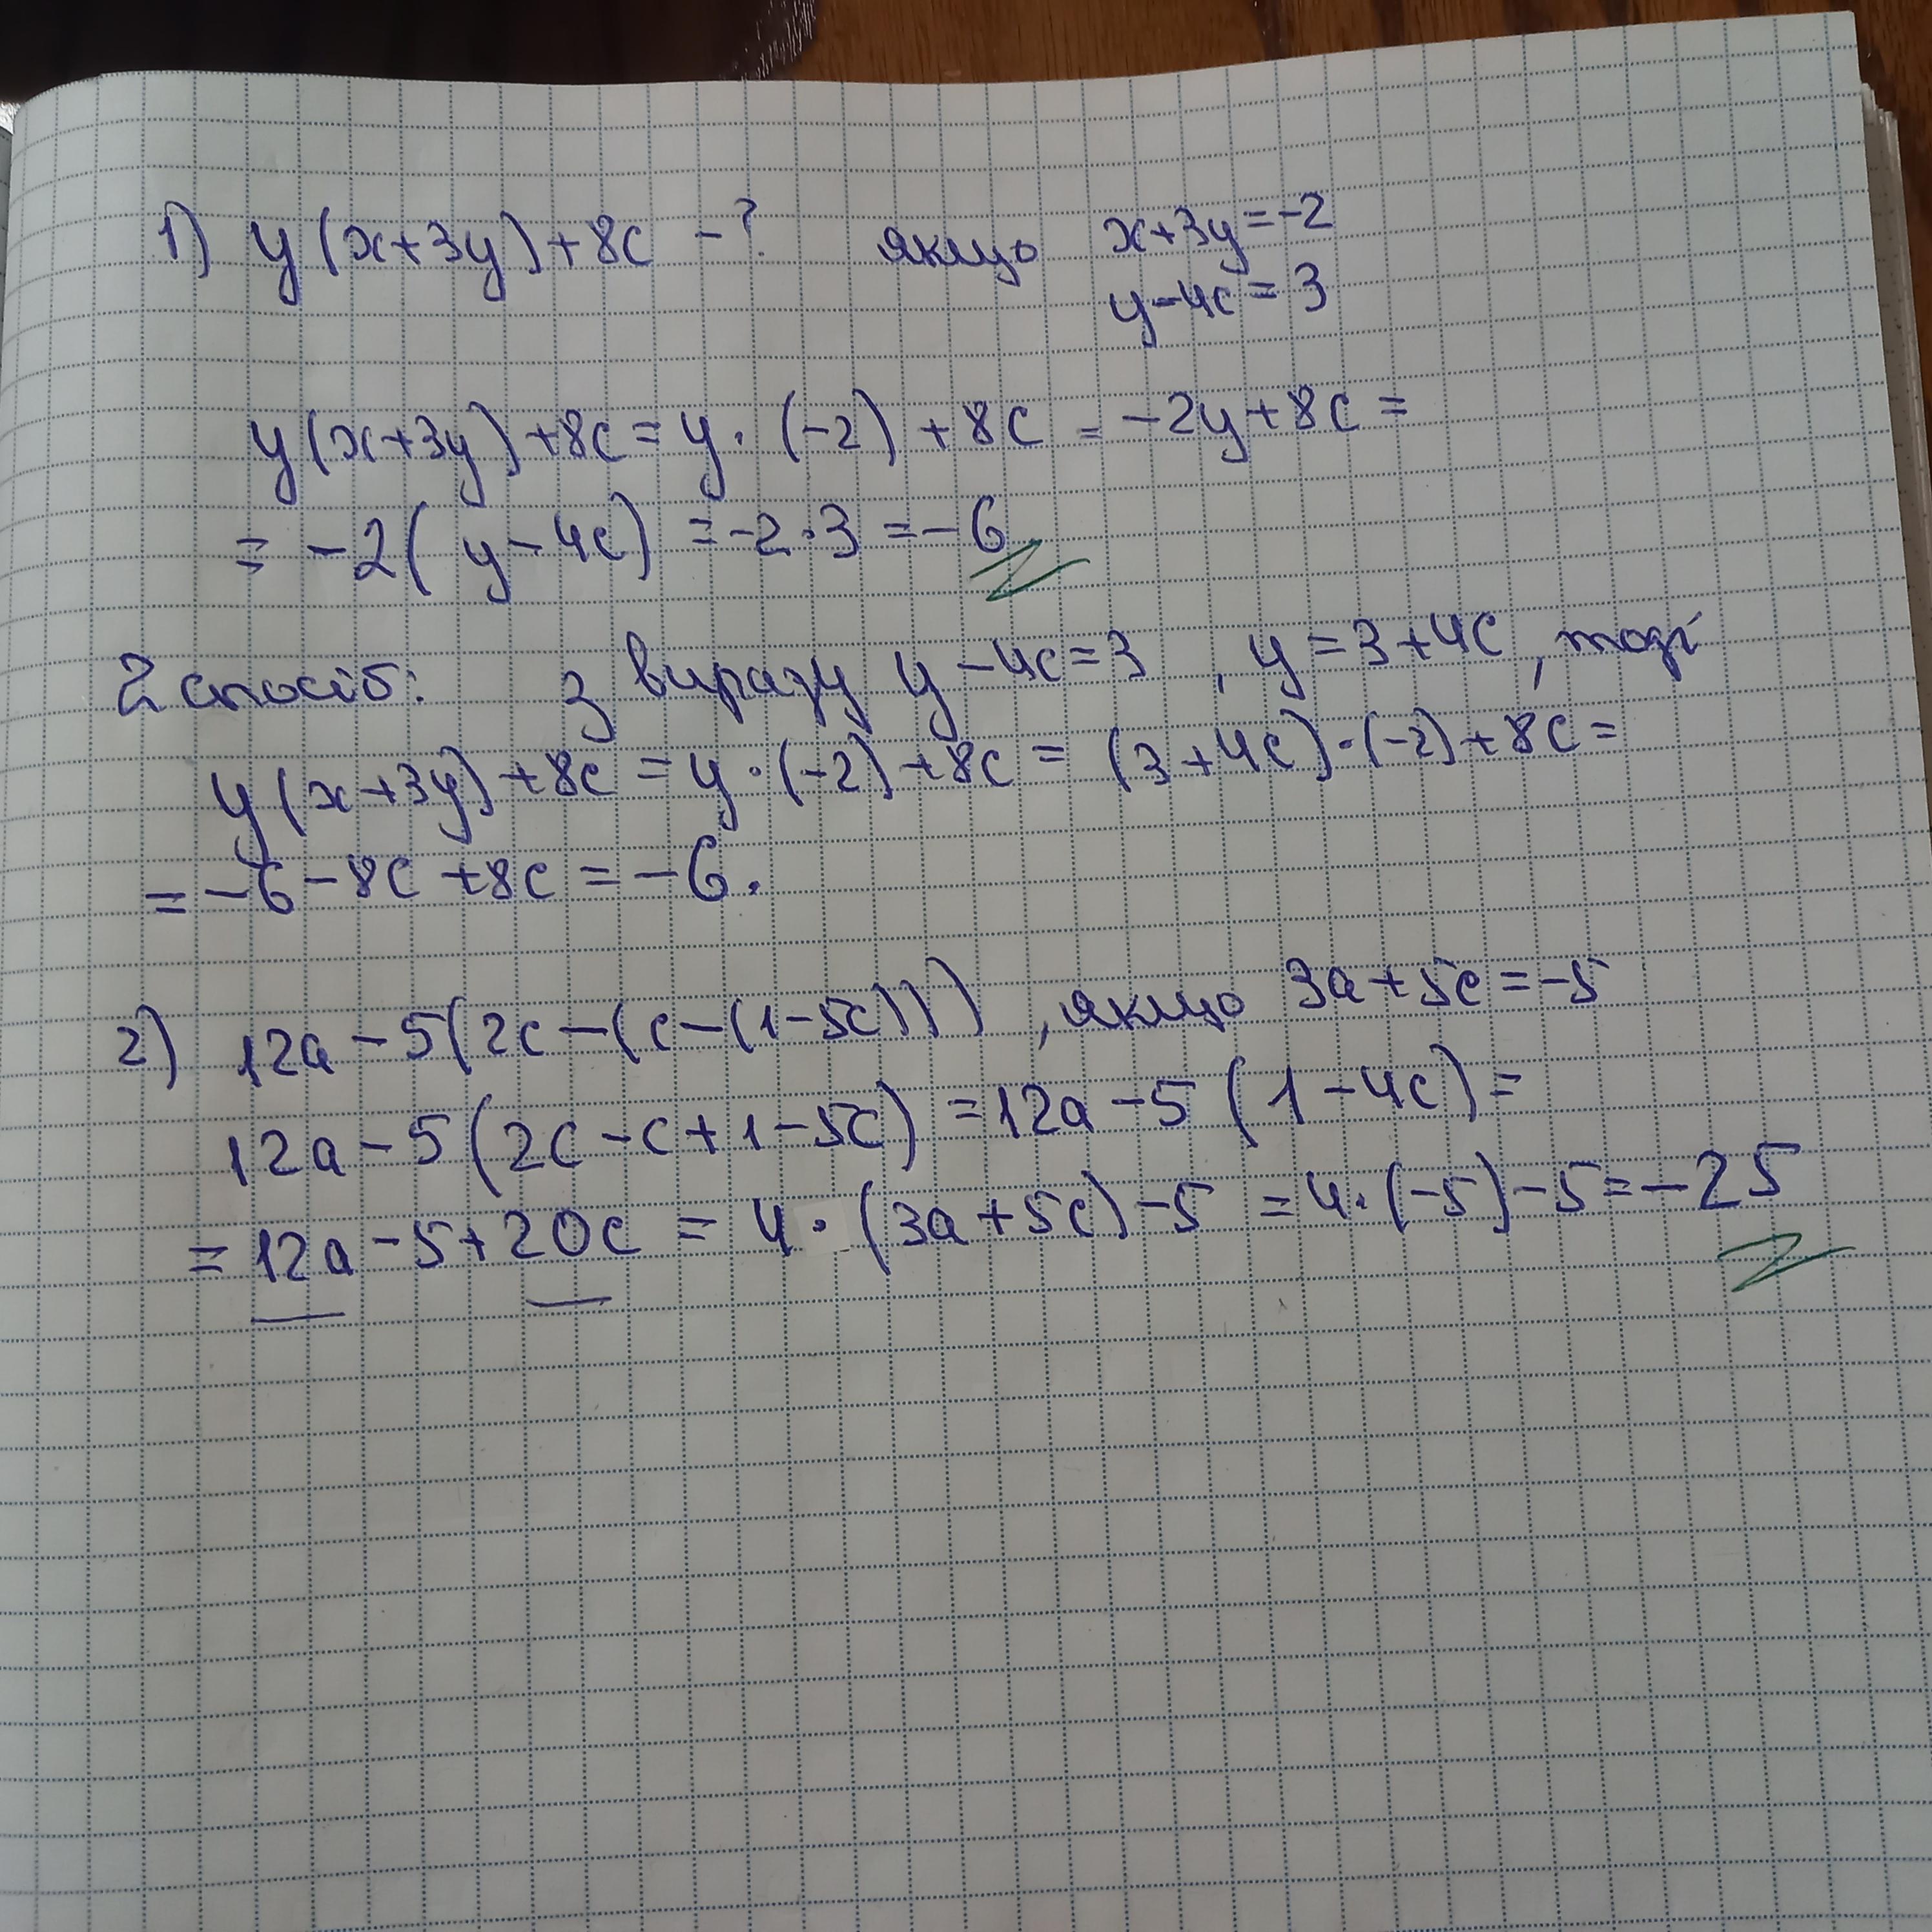 1) y(x+3y)+8c -? якщо x+3y=-2
y-4c=3
y(x+3y)+8c=y·(-2)+8c=-2y+8c=
=-2(y-4c)=-2·3=-6
2 спосіб: з виразу y-4c=3, y=3+4c, тоді
y(x+3y)+8c=y·(-2)+8c=(3+4c)·(-2)+8c=
=-6-8c+8c=-6.
2) 12a-5(2c-(c-(1-5c))), якщо 3a+5c=-5
12a-5(2c-c+1-5c)=12a-5(1-4c)=
=12a-5+20c=4·(3a+5c)-5=4·(-5)-5=-25